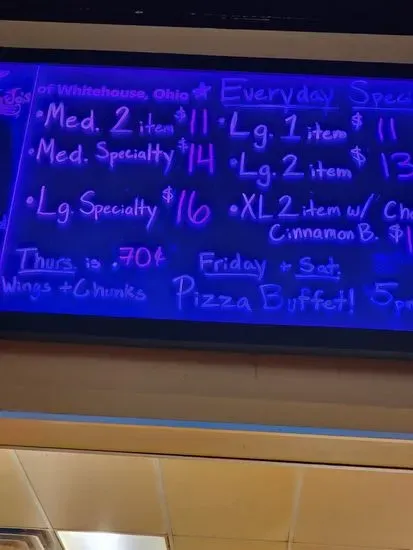 of Whitehouse, Ohio
Everyday Spec
• Med. 2 item $11
• Lg. 1 item $11
• Med. Specialty $14
• Lg. 2 item $13
• Lg. Specialty $16
• XL 2 item w/ Ch
Cinnamon B. $1
Thurs. is .70¢
Wings + Chunks
Friday + Sat.
Pizza Buffet! 5p